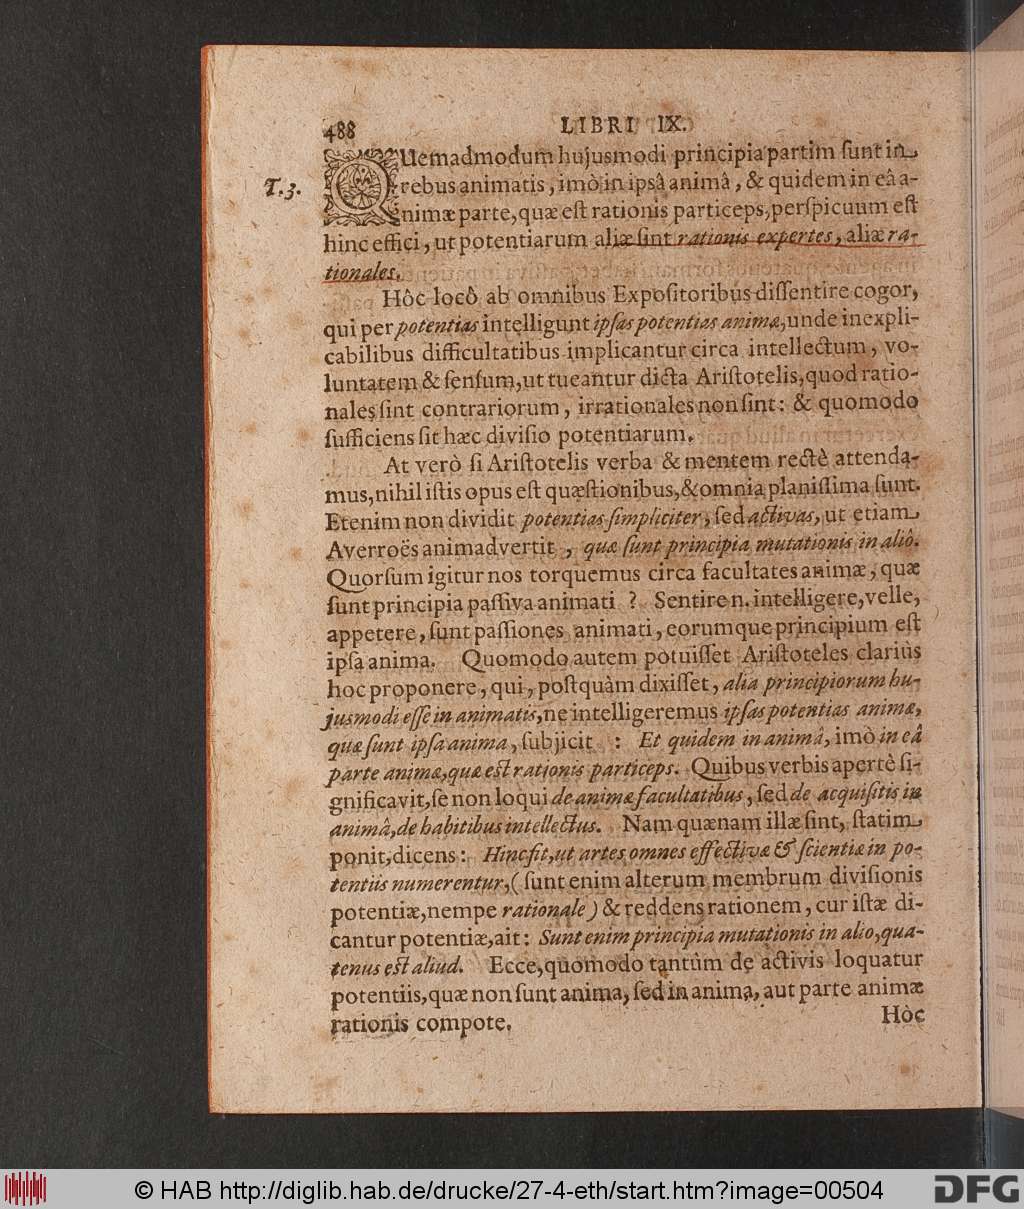 488 LIBRI IX.
T. 3. QUemadmodum hujusmodi principia partim ſunt in
rebus animatis, imò in ipsâ animâ, & quidem in eâ a-
nimæ parte, quæ eſt rationis particeps, perſpicuum eſt
hinc effici, ut potentiarum aliæ ſint rationis expertes, aliæ ra-
tionales.
Hôc locô ab omnibus Expoſitoribus diſſentire cogor,
qui per potentias intelligunt ipſas potentias animæ, unde inexpli-
cabilibus difficultatibus implicantur circa intellectum, vo-
luntatem & ſenſum, ut tueantur dicta Ariſtotelis, quod ratio-
nales ſint contrariorum, irrationales non ſint: & quomodo
ſufficiens ſit hæc diviſio potentiarum.
At verò ſi Ariſtotelis verba & mentem rectè attenda-
mus, nihil iſtis opus eſt quæſtionibus, & omnia planiſſima ſunt.
Etenim non dividit potentias ſimpliciter, ſed activas, ut etiam
Averroës animadvertit, quæ ſunt principia mutationis in aliô.
Quorſum igitur nos torquemus circa facultates animæ, quæ
ſunt principia paſſiva animati ? Sentire n. intelligere, velle,
appetere, ſunt paſſiones animati, eorumque principium eſt
ipſa anima. Quomodo autem potuiſſet Ariſtoteles clariùs
hoc proponere, qui, poſtquàm dixiſſet, alia principiorum hu-
jusmodi eſſe in animatis, ne intelligeremus ipſas potentias animæ,
quæ ſunt ipſa anima, ſubjicit : Et quidem in animâ, imò in eâ
parte animæ, quæ eſt rationis particeps. Quibus verbis apertè ſi-
gnificavit, ſe non loqui de animæ facultatibus, ſed de acquiſitis in
animâ, de habitibus intellectus. Nam quænam illæ ſint, ſtatim
ponit, dicens: Hinc fit, ut artes omnes effectivæ & ſcientiæ in po-
tentiis numerentur, ( ſunt enim alterum membrum diviſionis
potentiæ, nempe rationale ) & reddens rationem, cur iſtæ di-
cantur potentiæ, ait: Sunt enim principia mutationis in alio, qua-
tenus eſt aliud. Ecce, quomodo tantûm de activis loquatur
potentiis, quæ non ſunt anima, ſed in anima, aut parte animæ
rationis compote. Hòc
© HAB http://diglib.hab.de/drucke/27-4-eth/start.htm?image=00504 DFG